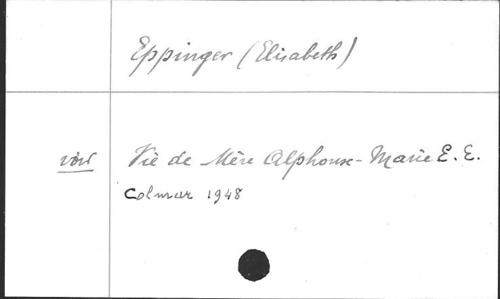 Eppinger (Elisabeth)
voir Vie de Mère Alphonse-Marie E. E.
Colmar 1948